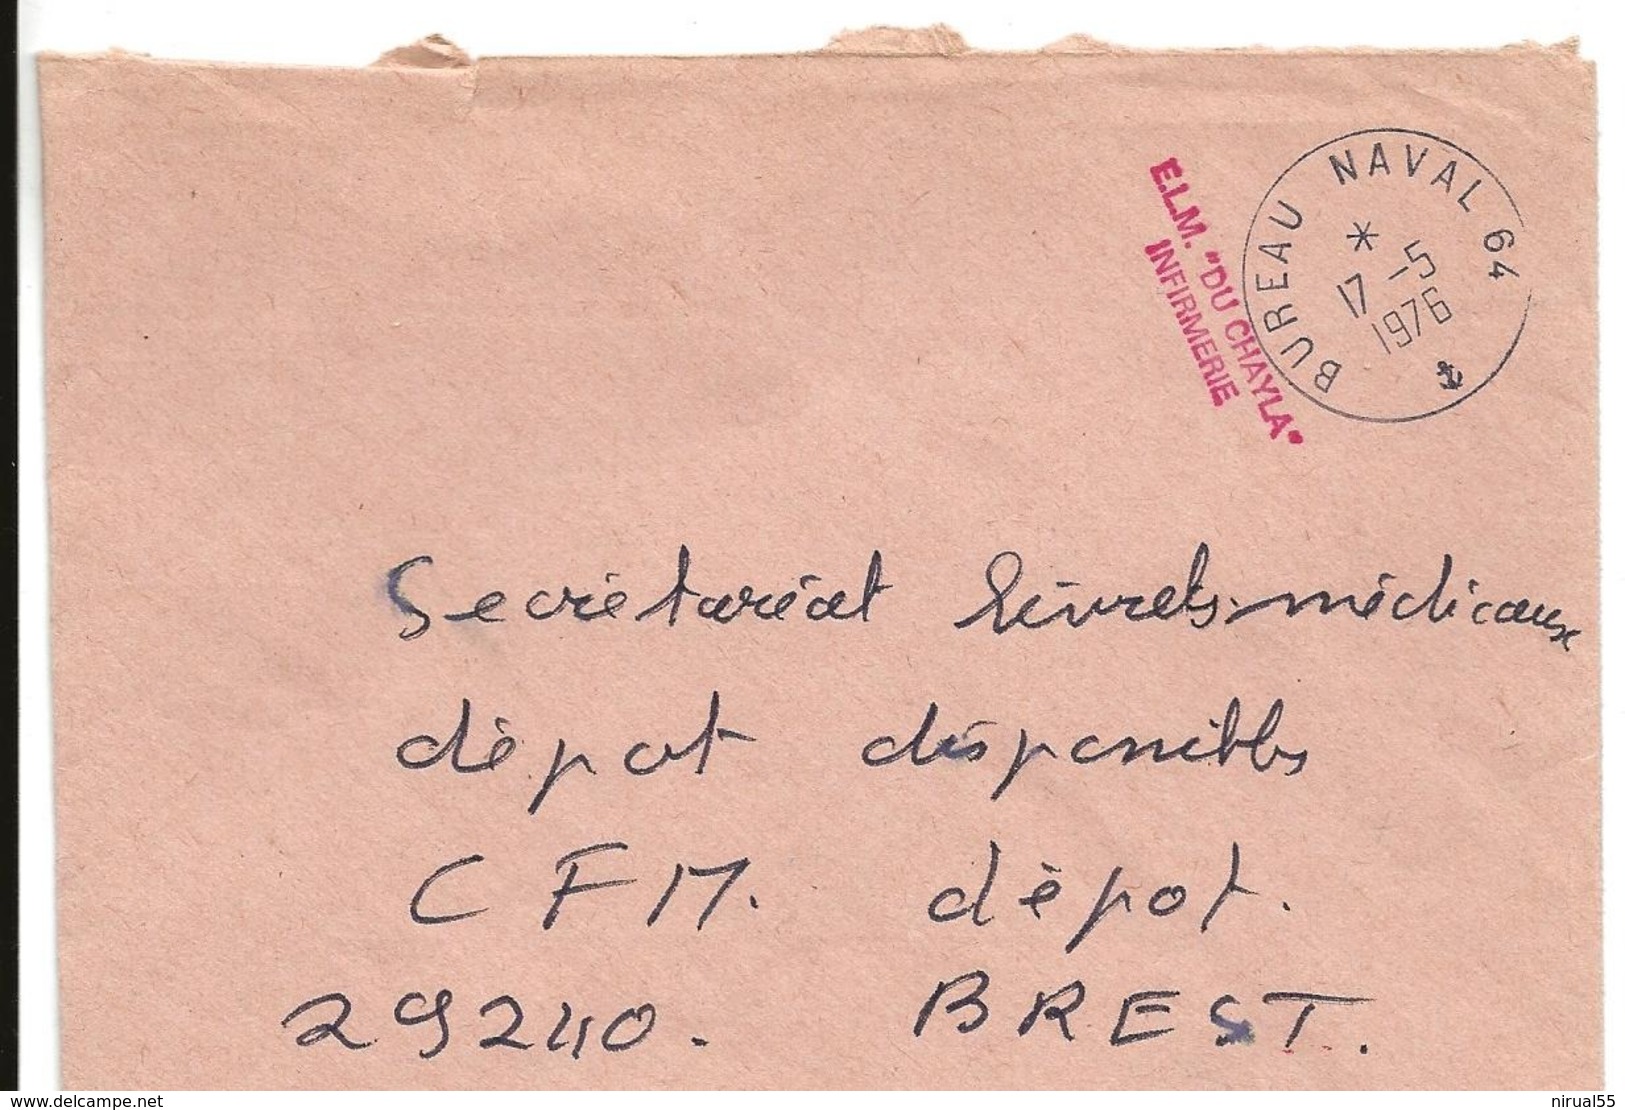 BUREAU NAVAL 64
*
17 -5
1976
E.L.M. "DU CHAYLA"
INFIRMERIE
Secrétariat livrets médicaux
dépot disponibles
CFM. dépot.
29240. BREST.
www.delcampe.net
nirual55